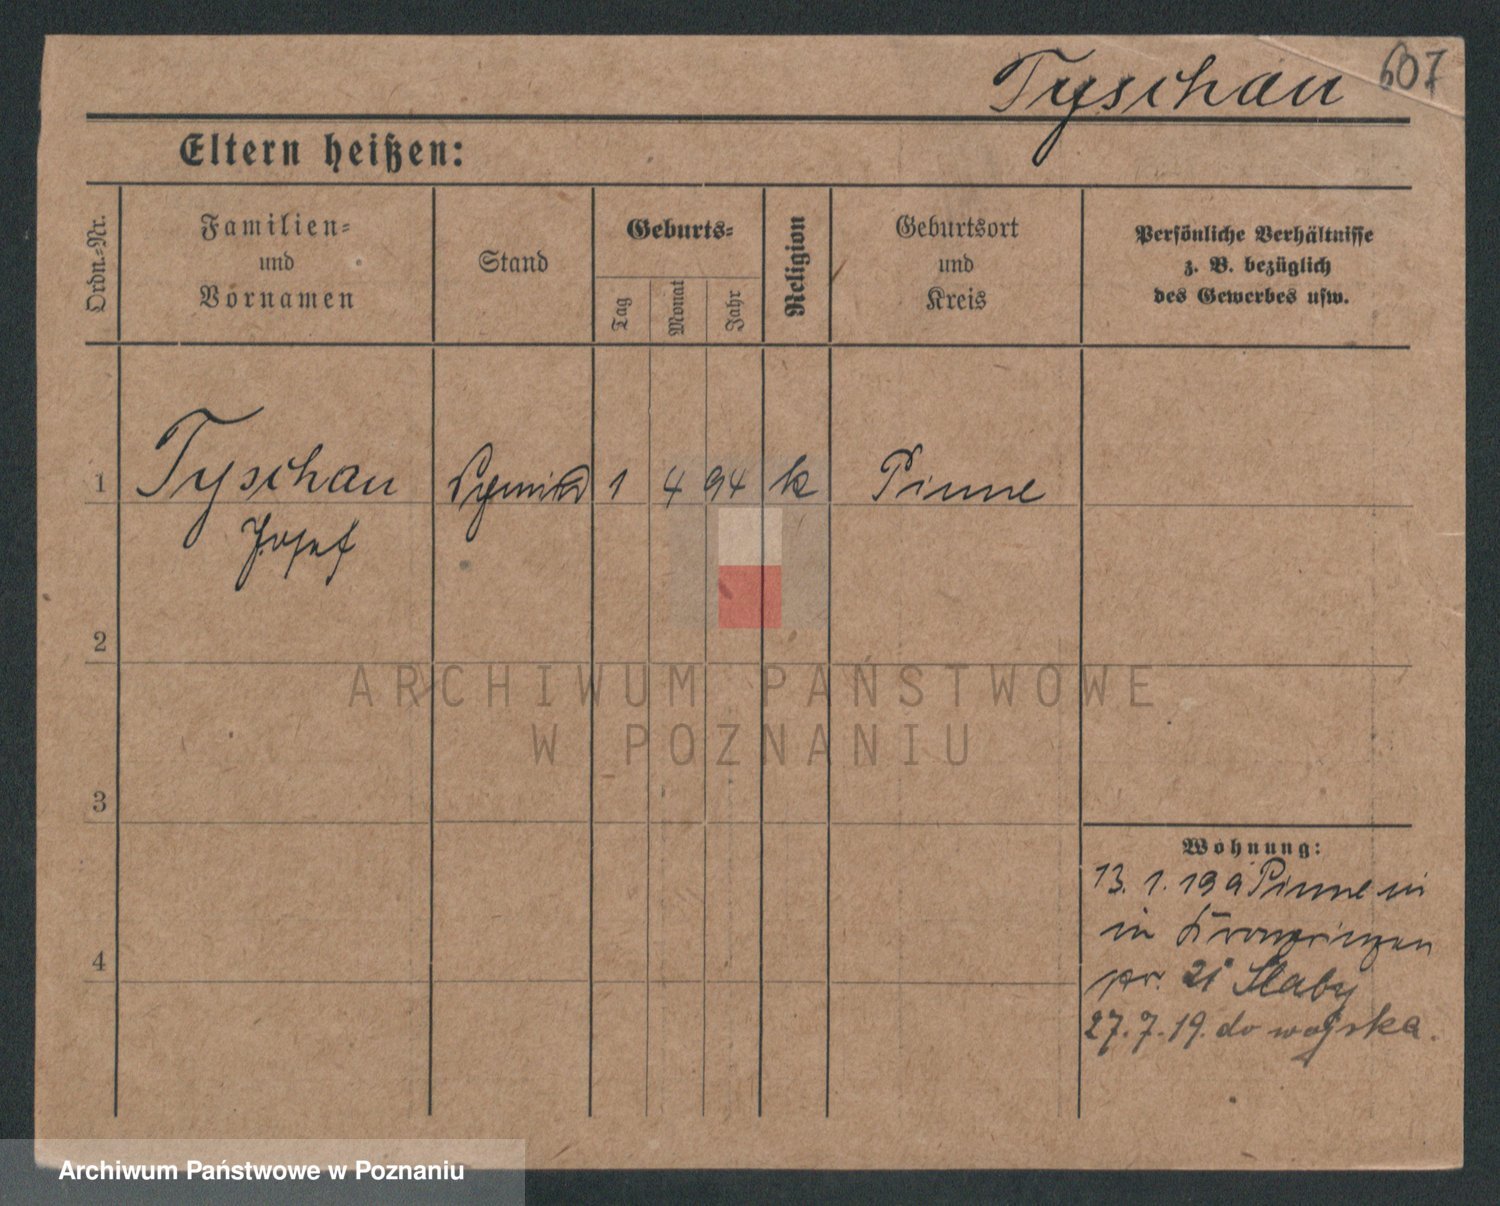 Tyschau 607
Eltern heißen:
Ordn.-Nr.
Familien-
und
Vornamen
Stand
Geburts-
Tag
Monat
Jahr
Religion
Geburtsort
und
Kreis
Persönliche Verhältnisse
z. B. bezüglich
des Gewerbes usw.
1 Tyschau 1 4 94 k Pinne
Josef
2
3
4
Wohnung:
13. 1. 19 a Pinne
in Kronprinzen
pr. 21 Slaby
27. 7. 19. do wojska.
ARCHIWUM PAŃSTWOWE
W POZNANIU
Archiwum Państwowe w Poznaniu